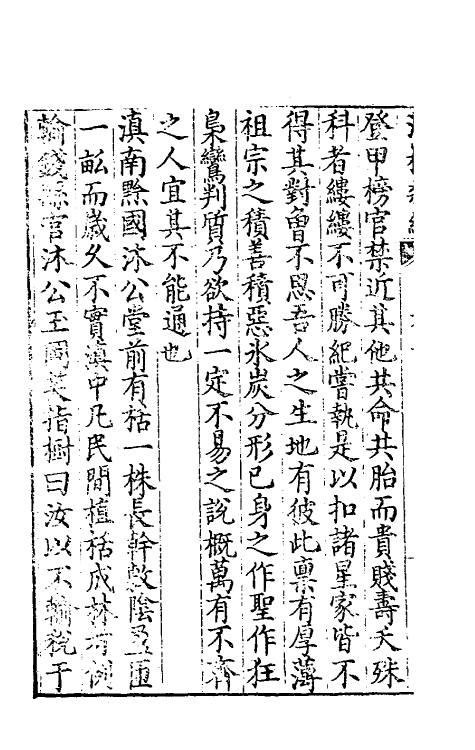 登甲榜官禁近其他共命共胎而貴賤壽夭殊
科者縷縷不可勝紀嘗執是以扣諸星家皆不
得其對曾不思吾人之生地有彼此禀有厚薄
祖宗之積善積惡氷炭分形已身之作聖作狂
梟鸞判質乃欲持一定不易之說概萬有不齊
之人宜其不能通也
滇南黔國沐公堂前有栝一株長幹敷陰盈匝
一畝而歲久不實滇中凡民間植栝成林有例
輸錢縣官沐公王國英指樹曰汝以不輸稅于